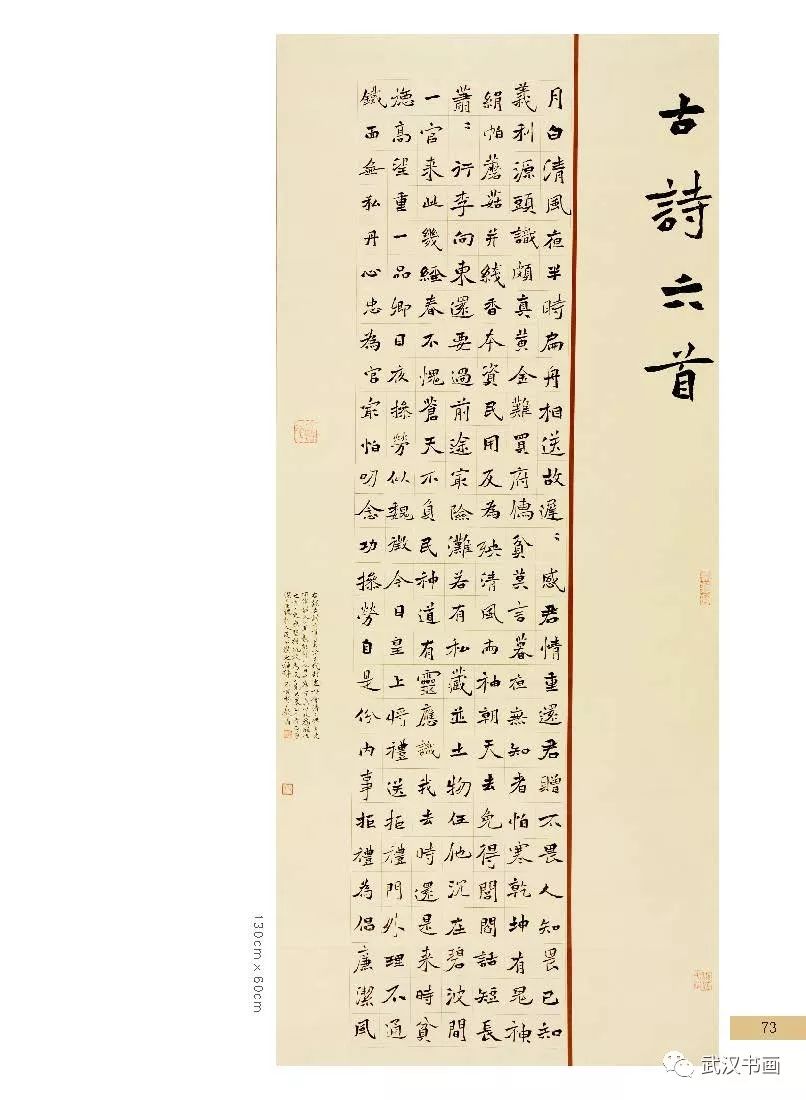 古詩六首
月白清風夜半時扁舟相送故遲〻感君情重還君贈不畏人知畏己知
義利源頭識頗真黃金難買府儔貧莫言暮夜無知者怕寒乾坤有鬼神
絹帕蘑菇并綫香本資民用反為殃清風兩袖朝天去免得閭閻話短長
蕭〻行李向東還要過前途最險灘若有私藏並土物任他沉在碧波間
一官來此幾經春不愧蒼天不負民神道有靈應識我去時還是來時貧
德高望重一品卿日夜操勞似魏徵今日皇上將禮送拒禮門外理不通
鐵面無私丹心忠為官最怕叨念功操勞自是份內事拒禮為倡廉潔風
130cm×60cm
73
武汉书画